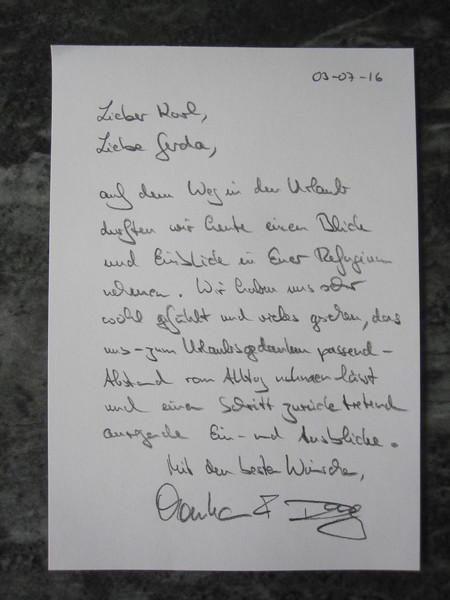 03-07-16
Lieber Karl,
Liebe Gerda,
auf dem Weg in den Urlaub
durften wir heute einen Blick
und Einblicke in Euer Refugium
nehmen. Wir haben uns sehr
wohl gefühlt und vieles gesehen, das
uns - zum Urlaubsgedanken passend -
Abstand vom Alltag nehmen lässt
und einen Schritt zurück tretend
anregende Ein- und Ausblicke.
Mit den besten Wünschen,
&